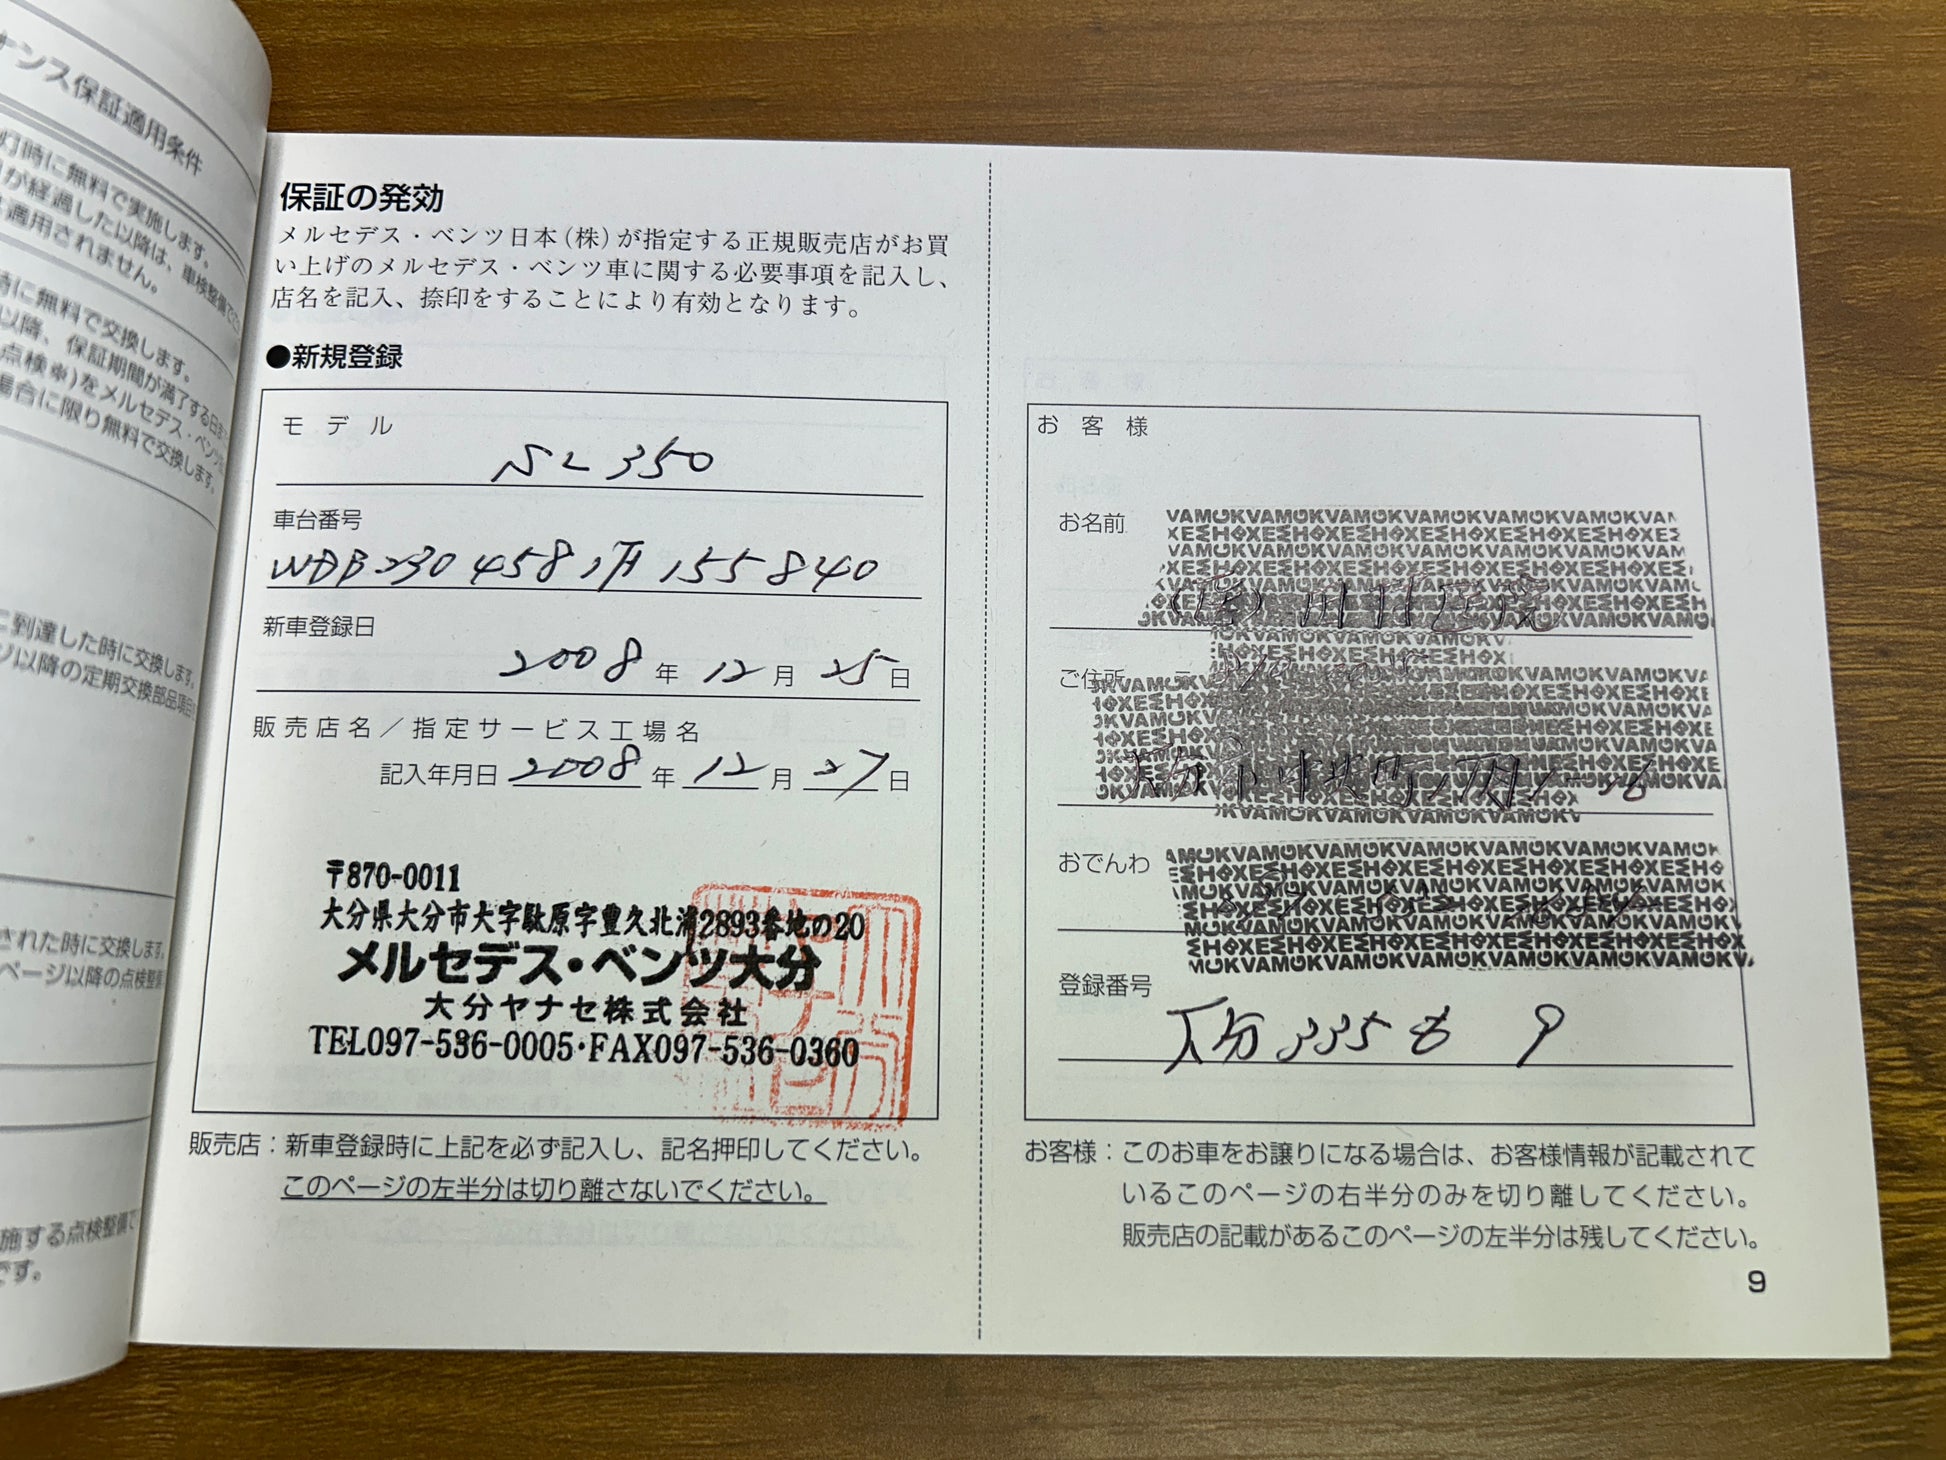 ナンス保証適用条件
灯時に無料で実施します。
が経過した以降は、車検整備で
適用されません。
時に無料で交換します。
以降、保証期間が満了する日ま
点検※)をメルセデス・ベンツ
場合に限り無料で交換します。
に到達した時に交換します。
ジ以降の定期交換部品項目
された時に交換します。
ページ以降の点検整備
施する点検整備で
です。
保証の発効
メルセデス・ベンツ日本(株)が指定する正規販売店がお買
い上げのメルセデス・ベンツ車に関する必要事項を記入し、
店名を記入、捺印をすることにより有効となります。
●新規登録
モデル
SL350
車台番号
WDB230458 1F 155840
新車登録日
2008年12月25日
販売店名／指定サービス工場名
記入年月日 2008年12月27日
〒870-0011
大分県大分市大字駄原字豊久北浦2893番地の20
メルセデス・ベンツ大分
大分ヤナセ株式会社
TEL097-536-0005・FAX097-536-0360
販売店：新車登録時に上記を必ず記入し、記名押印してください。
このページの左半分は切り離さないでください。
お客様
お名前
ご住所 〒
おでんわ
登録番号
大分 335 9
お客様：このお車をお譲りになる場合は、お客様情報が記載されて
いるこのページの右半分のみを切り離してください。
販売店の記載があるこのページの左半分は残してください。
9